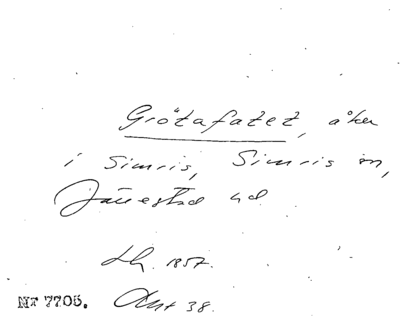 Grötafatet, åker
i Simris, Simris sn,
Järrestad hd
Lh. 1857.
Nr 7705. Akt 38.